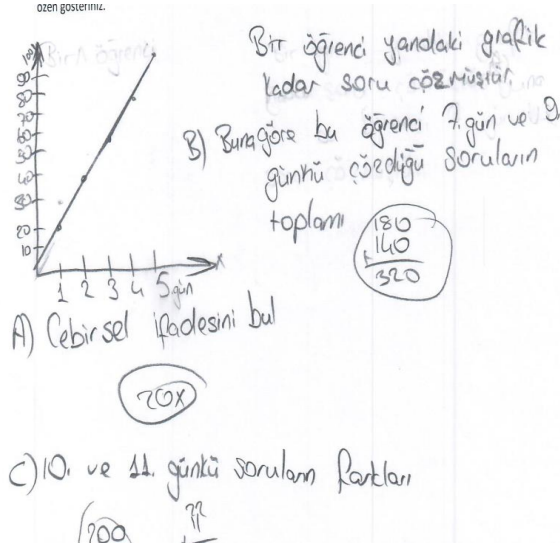 özen gösteriniz.
Bir öğrenci yandaki grafik
kadar soru çözmüştür.
B) Buna göre bu öğrenci 7. gün ve 9.
günkü çözdüğü soruların
toplamı
180
140
+
320
90
80
70
60
50
40
30
20
10
1 2 3 4 5 gün
x
A) Cebirsel ifadesini bul
20x
C) 10. ve 11. günkü soruların farkları
200